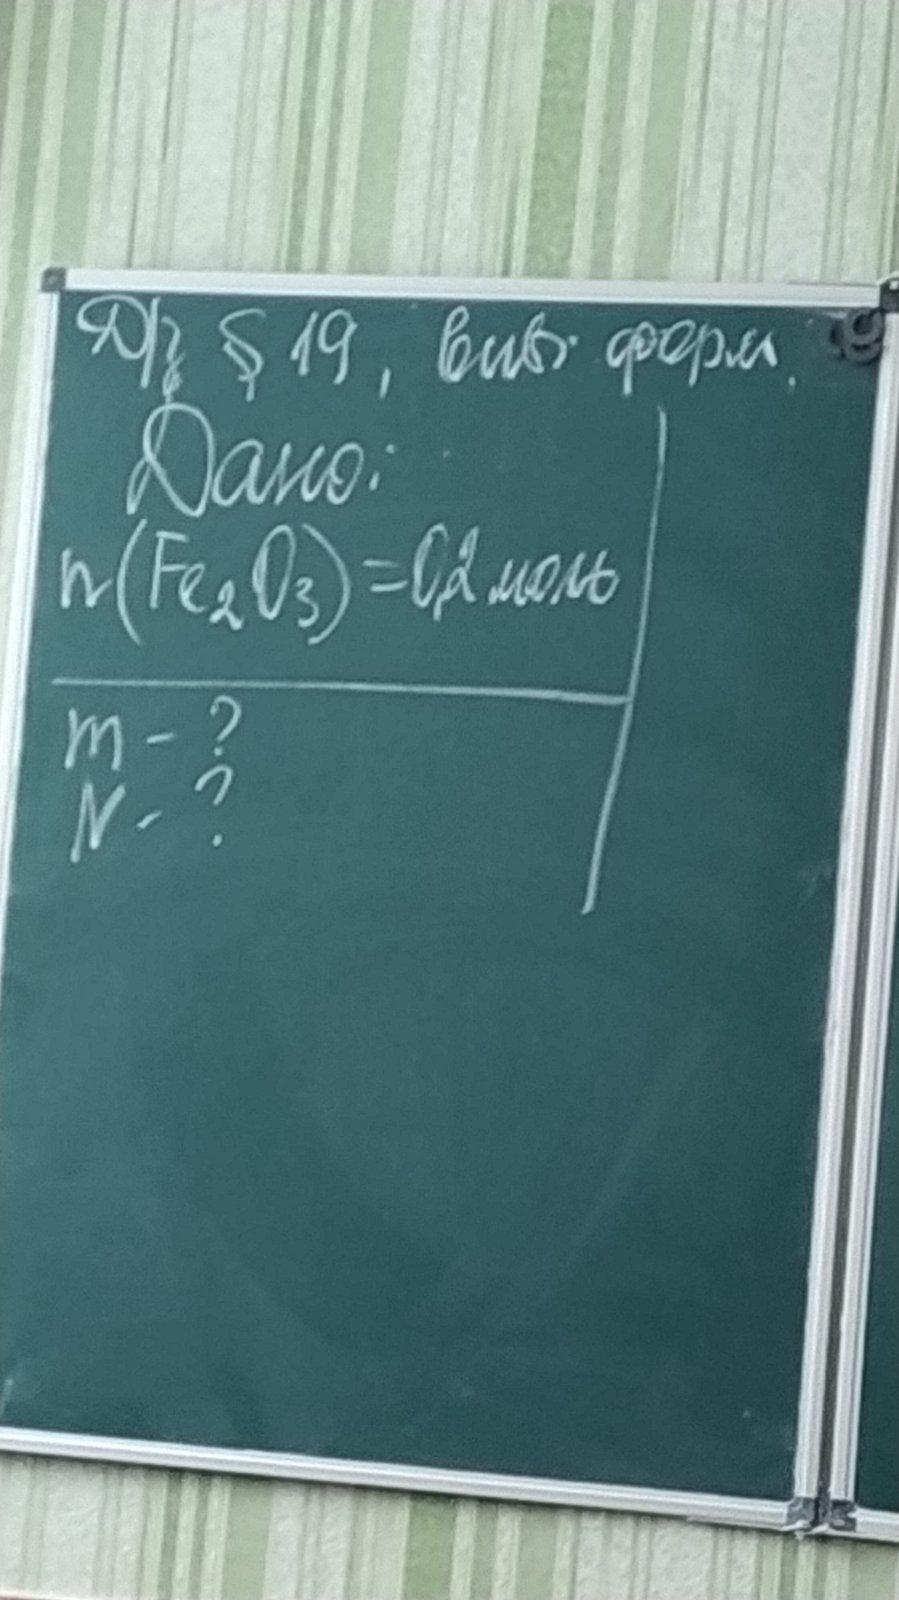 Д/з § 19, вивч. форм.
Дано:
n(Fe₂O₃)=0,2 моль
m - ?
N - ?